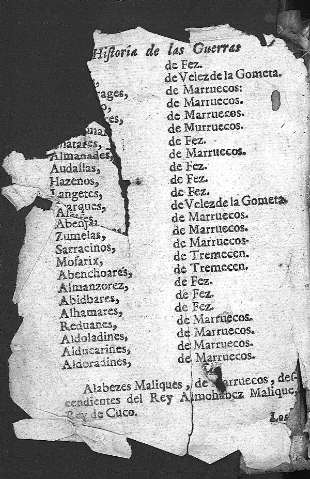 Historia de las Guerras
de Fez.
de Velez de la Gometa.
rages, de Marruecos:
o, de Marruecos.
es, de Marruecos.
de Murruecos.
de Fez.
Almanades, de Marruecos.
Audallas, de Fez.
Hazenos, de Fez.
Langeres, de Fez.
arques, de Velez de la Gometa.
de Marruecos.
Abenjai de Marruecos.
Zumelas, de Marruecos.
Sarracinos, de Tremecen.
Mofarix, de Tremecen.
Abenchoares, de Fez.
Almanzorez, de Fez.
Abidbares, de Fez.
Alhamares, de Marruecos.
Reduanes, de Marruecos.
Aldoladines, de Marruecos.
Alducarines, de Marruecos.
Aldoradines,
Alabezes Maliques, de Marruecos, des-
cendientes del Rey Almohabez Malique,
Rey de Cuco.
Los